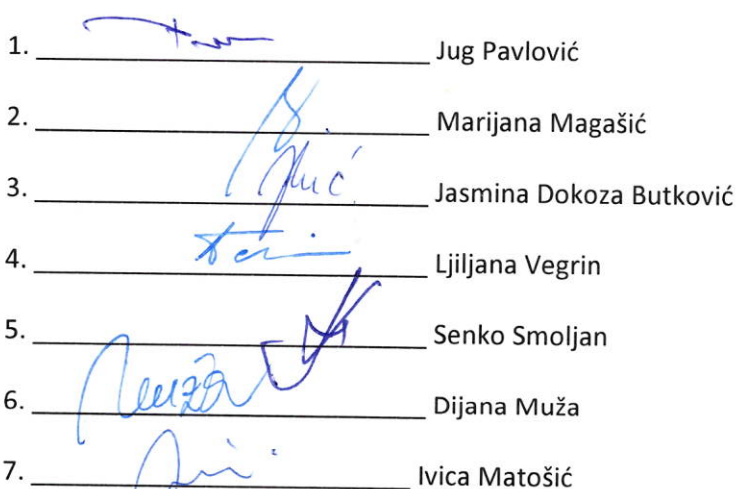 1. Jug Pavlović
2. Marijana Magašić
3. Jasmina Dokoza Butković
4. Ljiljana Vegrin
5. Senko Smoljan
6. Muža Dijana Muža
7. Ivica Matošić